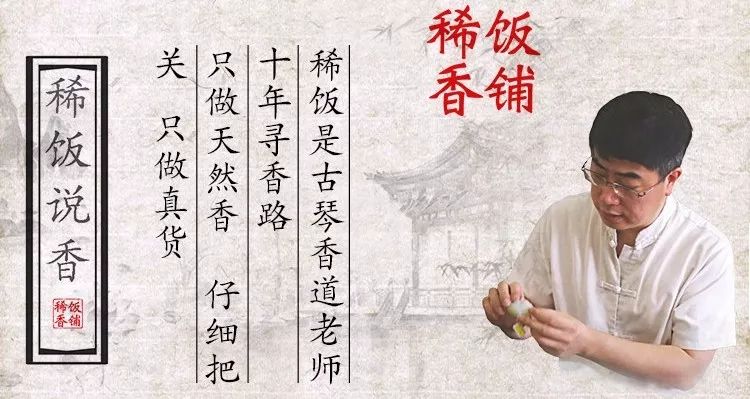 稀饭香铺
稀饭是古琴香道老师
十年寻香路
只做天然香 仔细把
关 只做真货
稀饭说香
稀饭香铺